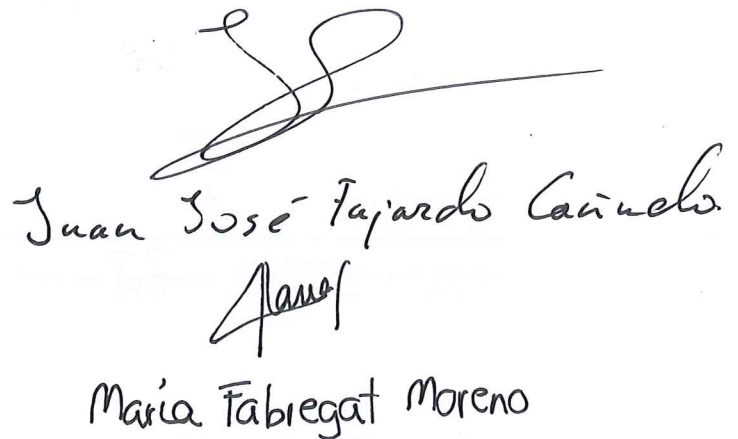 Juan José Fajardo
María Fabregat Moreno